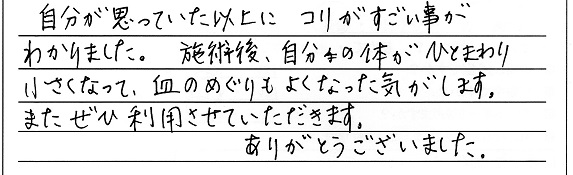 自分が思っていた以上に コリがすごい事が
わかりました。 施術後、自分の体が ひとまわり
小さくなって、血のめぐりもよくなった気がします。
またぜひ利用させていただきます。
ありがとうございました。